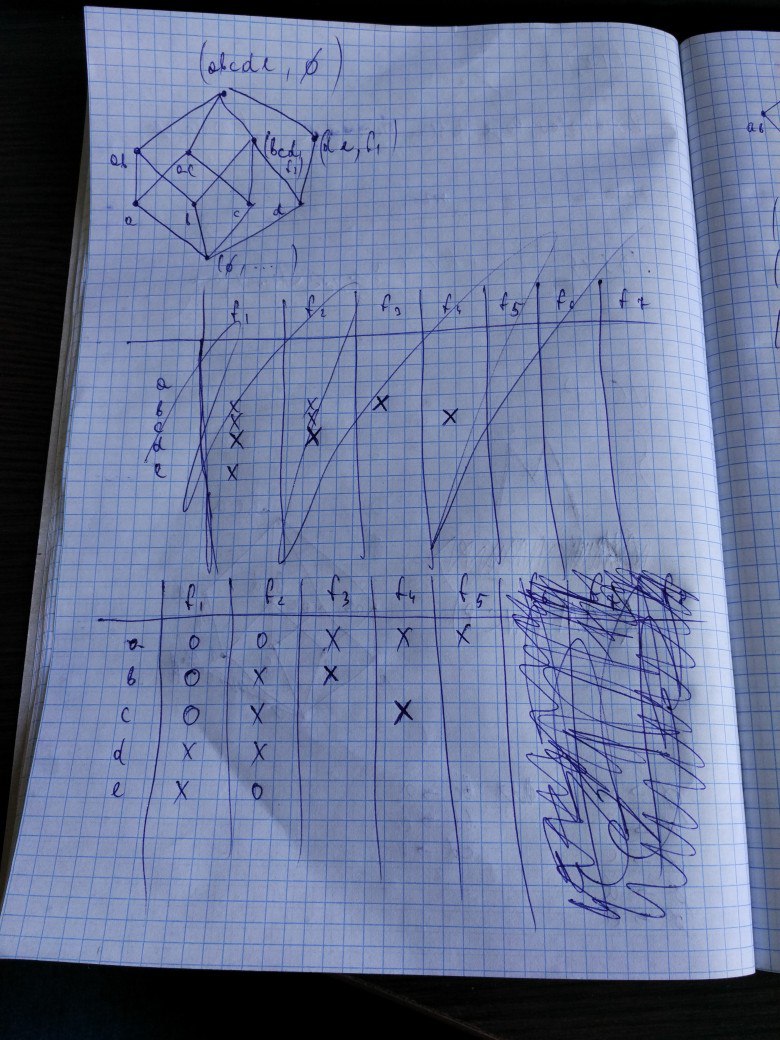 (abcde, ∅)
ab ac (bcd, f₁) (de, f₁)
a b c d
(∅, ....)
f₁ f₂ f₃ f₄ f₅ f₆ f₇
a
b X X X
c X X X
d X X
e X
f₁ f₂ f₃ f₄ f₅
a O O X X X
b O X X
c O X X
d X X
e X O
ab